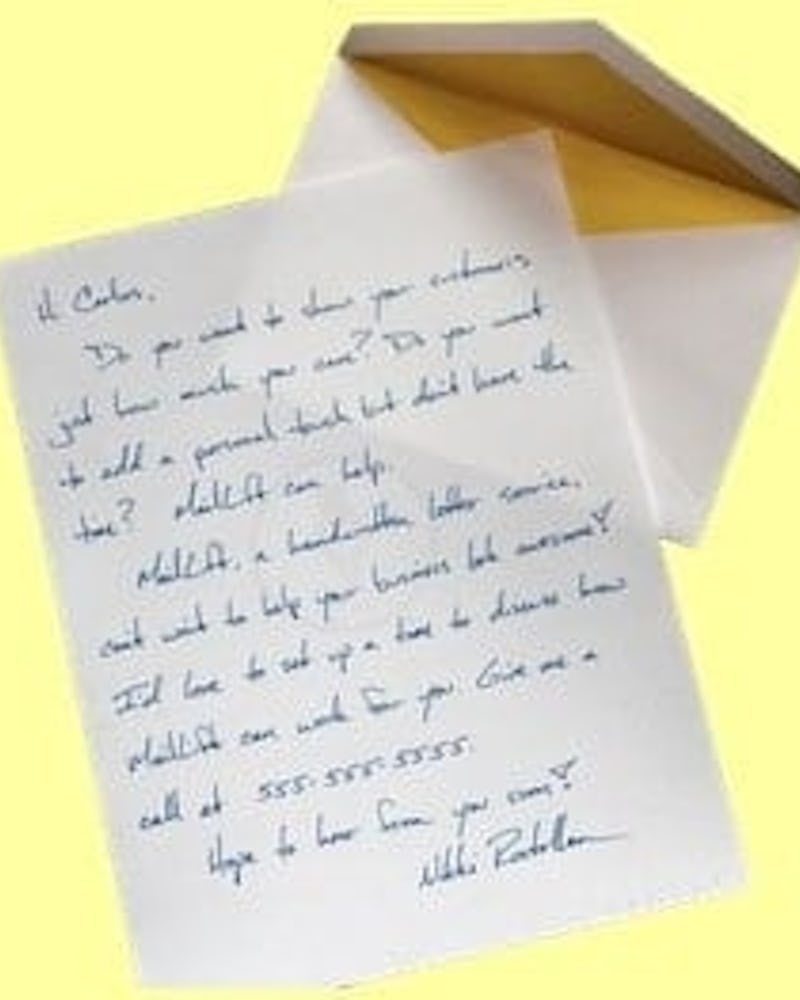 Hi Carlos,
Do you want to show your customers
just how much you care? Do you want
to add a personal touch but don't have the
time? MailLift can help.
MailLift, a handwritten letter service,
can't wait to help your business look awesome!
I'd love to set up a time to discuss how
MailLift can work for you. Give me a
call at 555-555-5555.
Hope to hear from you soon!
Nikki